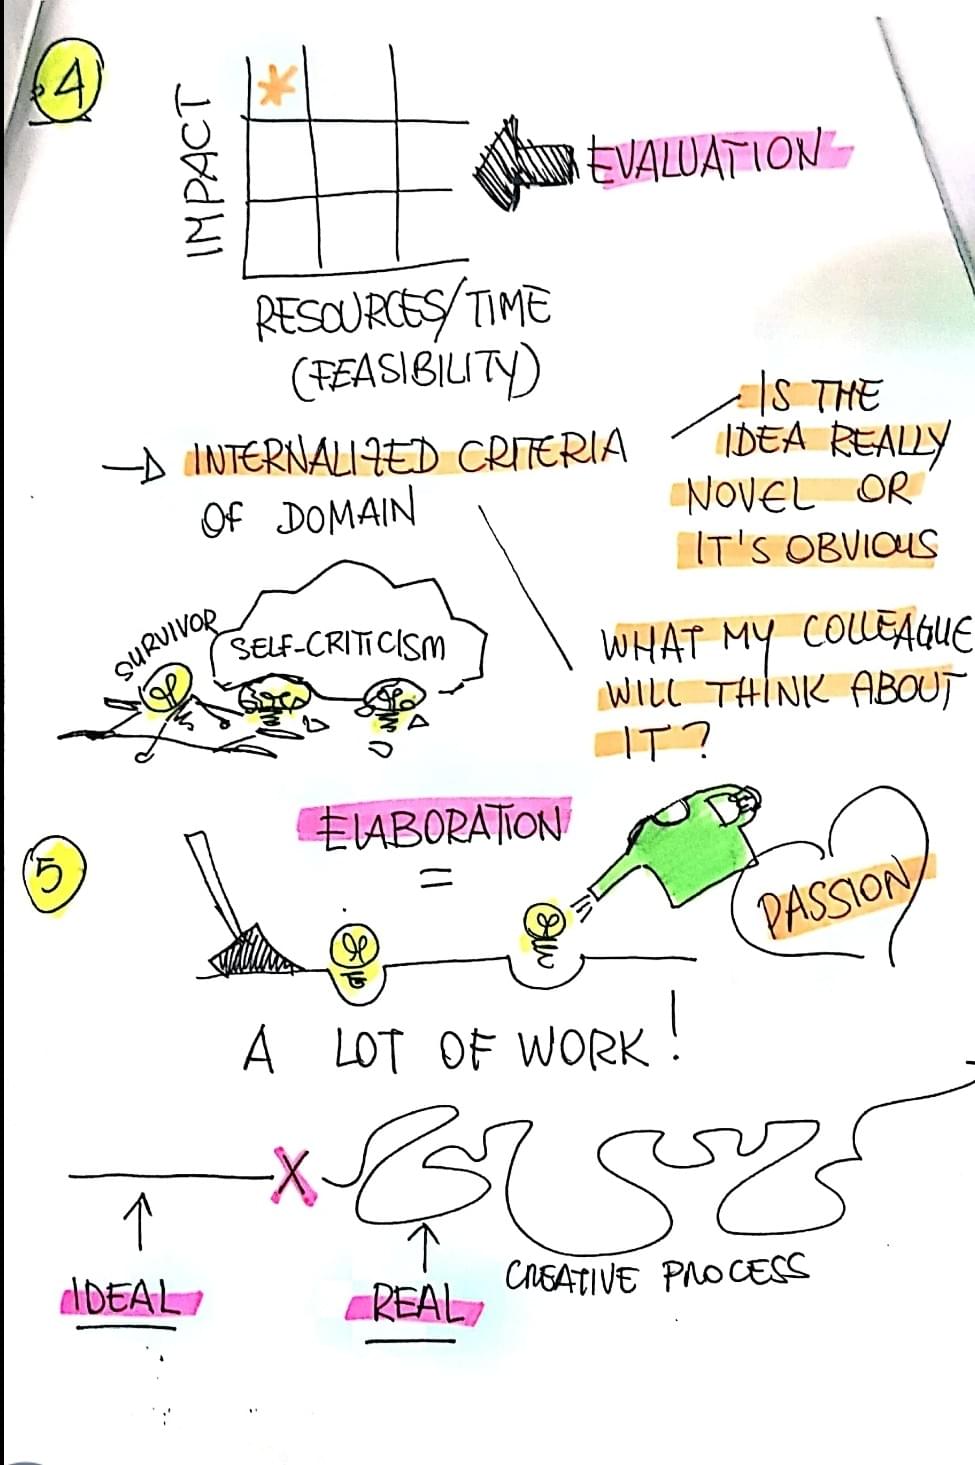 4
IMPACT
EVALUATION
RESOURCES/TIME
(FEASIBILITY)
INTERNALIZED CRITERIA
OF DOMAIN
IS THE
IDEA REALLY
NOVEL OR
IT'S OBVIOUS
WHAT MY COLLEAGUE
WILL THINK ABOUT
IT?
SURVIVOR
SELF-CRITICISM
5
ELABORATION
=
PASSION
A LOT OF WORK!
X
IDEAL
REAL
CREATIVE PROCESS